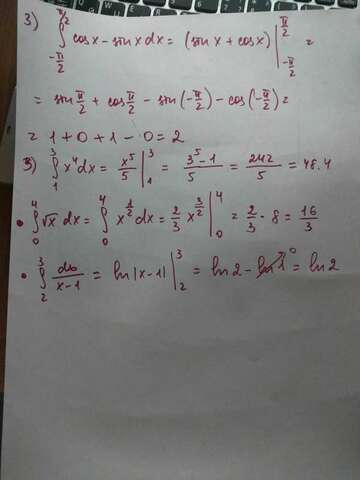 3) ∫_{-π/2}^{π/2} cosx - sinx dx = (sinx + cosx) |_{-π/2}^{π/2} =
= sin π/2 + cos π/2 - sin(-π/2) - cos(-π/2) =
= 1 + 0 + 1 - 0 = 2
3) ∫_1^3 x^4 dx = x^5/5 |_1^3 = (3^5 - 1)/5 = 242/5 = 48.4
• ∫_0^4 √x dx = ∫_0^4 x^{1/2} dx = 2/3 x^{3/2} |_0^4 = 2/3 · 8 = 16/3
• ∫_2^3 dx/(x-1) = ln|x-1| |_2^3 = ln2 - ln1 ↗0 = ln2